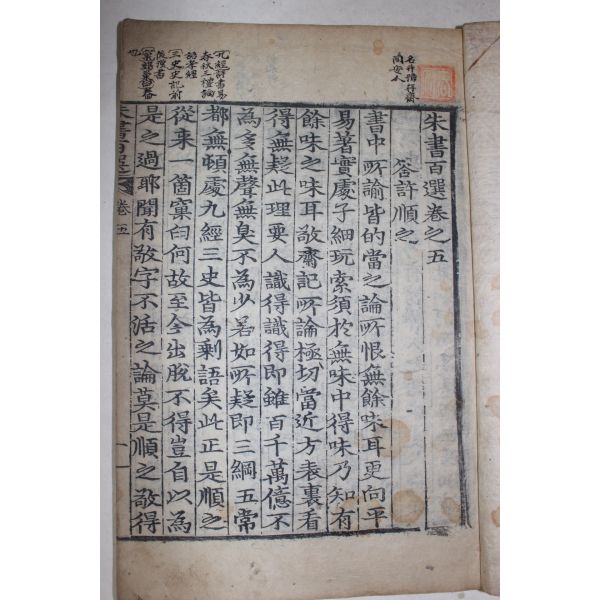 朱書百選卷之五
答許順之
書中所論皆的當之論所恨無餘味耳更向平
易著實處子細玩索須於無味中得味乃知有
餘味之味耳敬齋記所論極切當近方表裏看
得無疑此理要人識得識得即雖百千萬億不
為多無聲無臭不為少若如所疑即三綱五常
都無頓處九經三史皆為剩語矣此正是順之
從来一箇窠臼何故至今出脫不得豈自以為
是之過耶聞有敬字不活之論莫是順之敬得
卷五
名升號存齋
同安人
九經詩書易
春秋三禮論
語孝經
三史史記前
後漢書